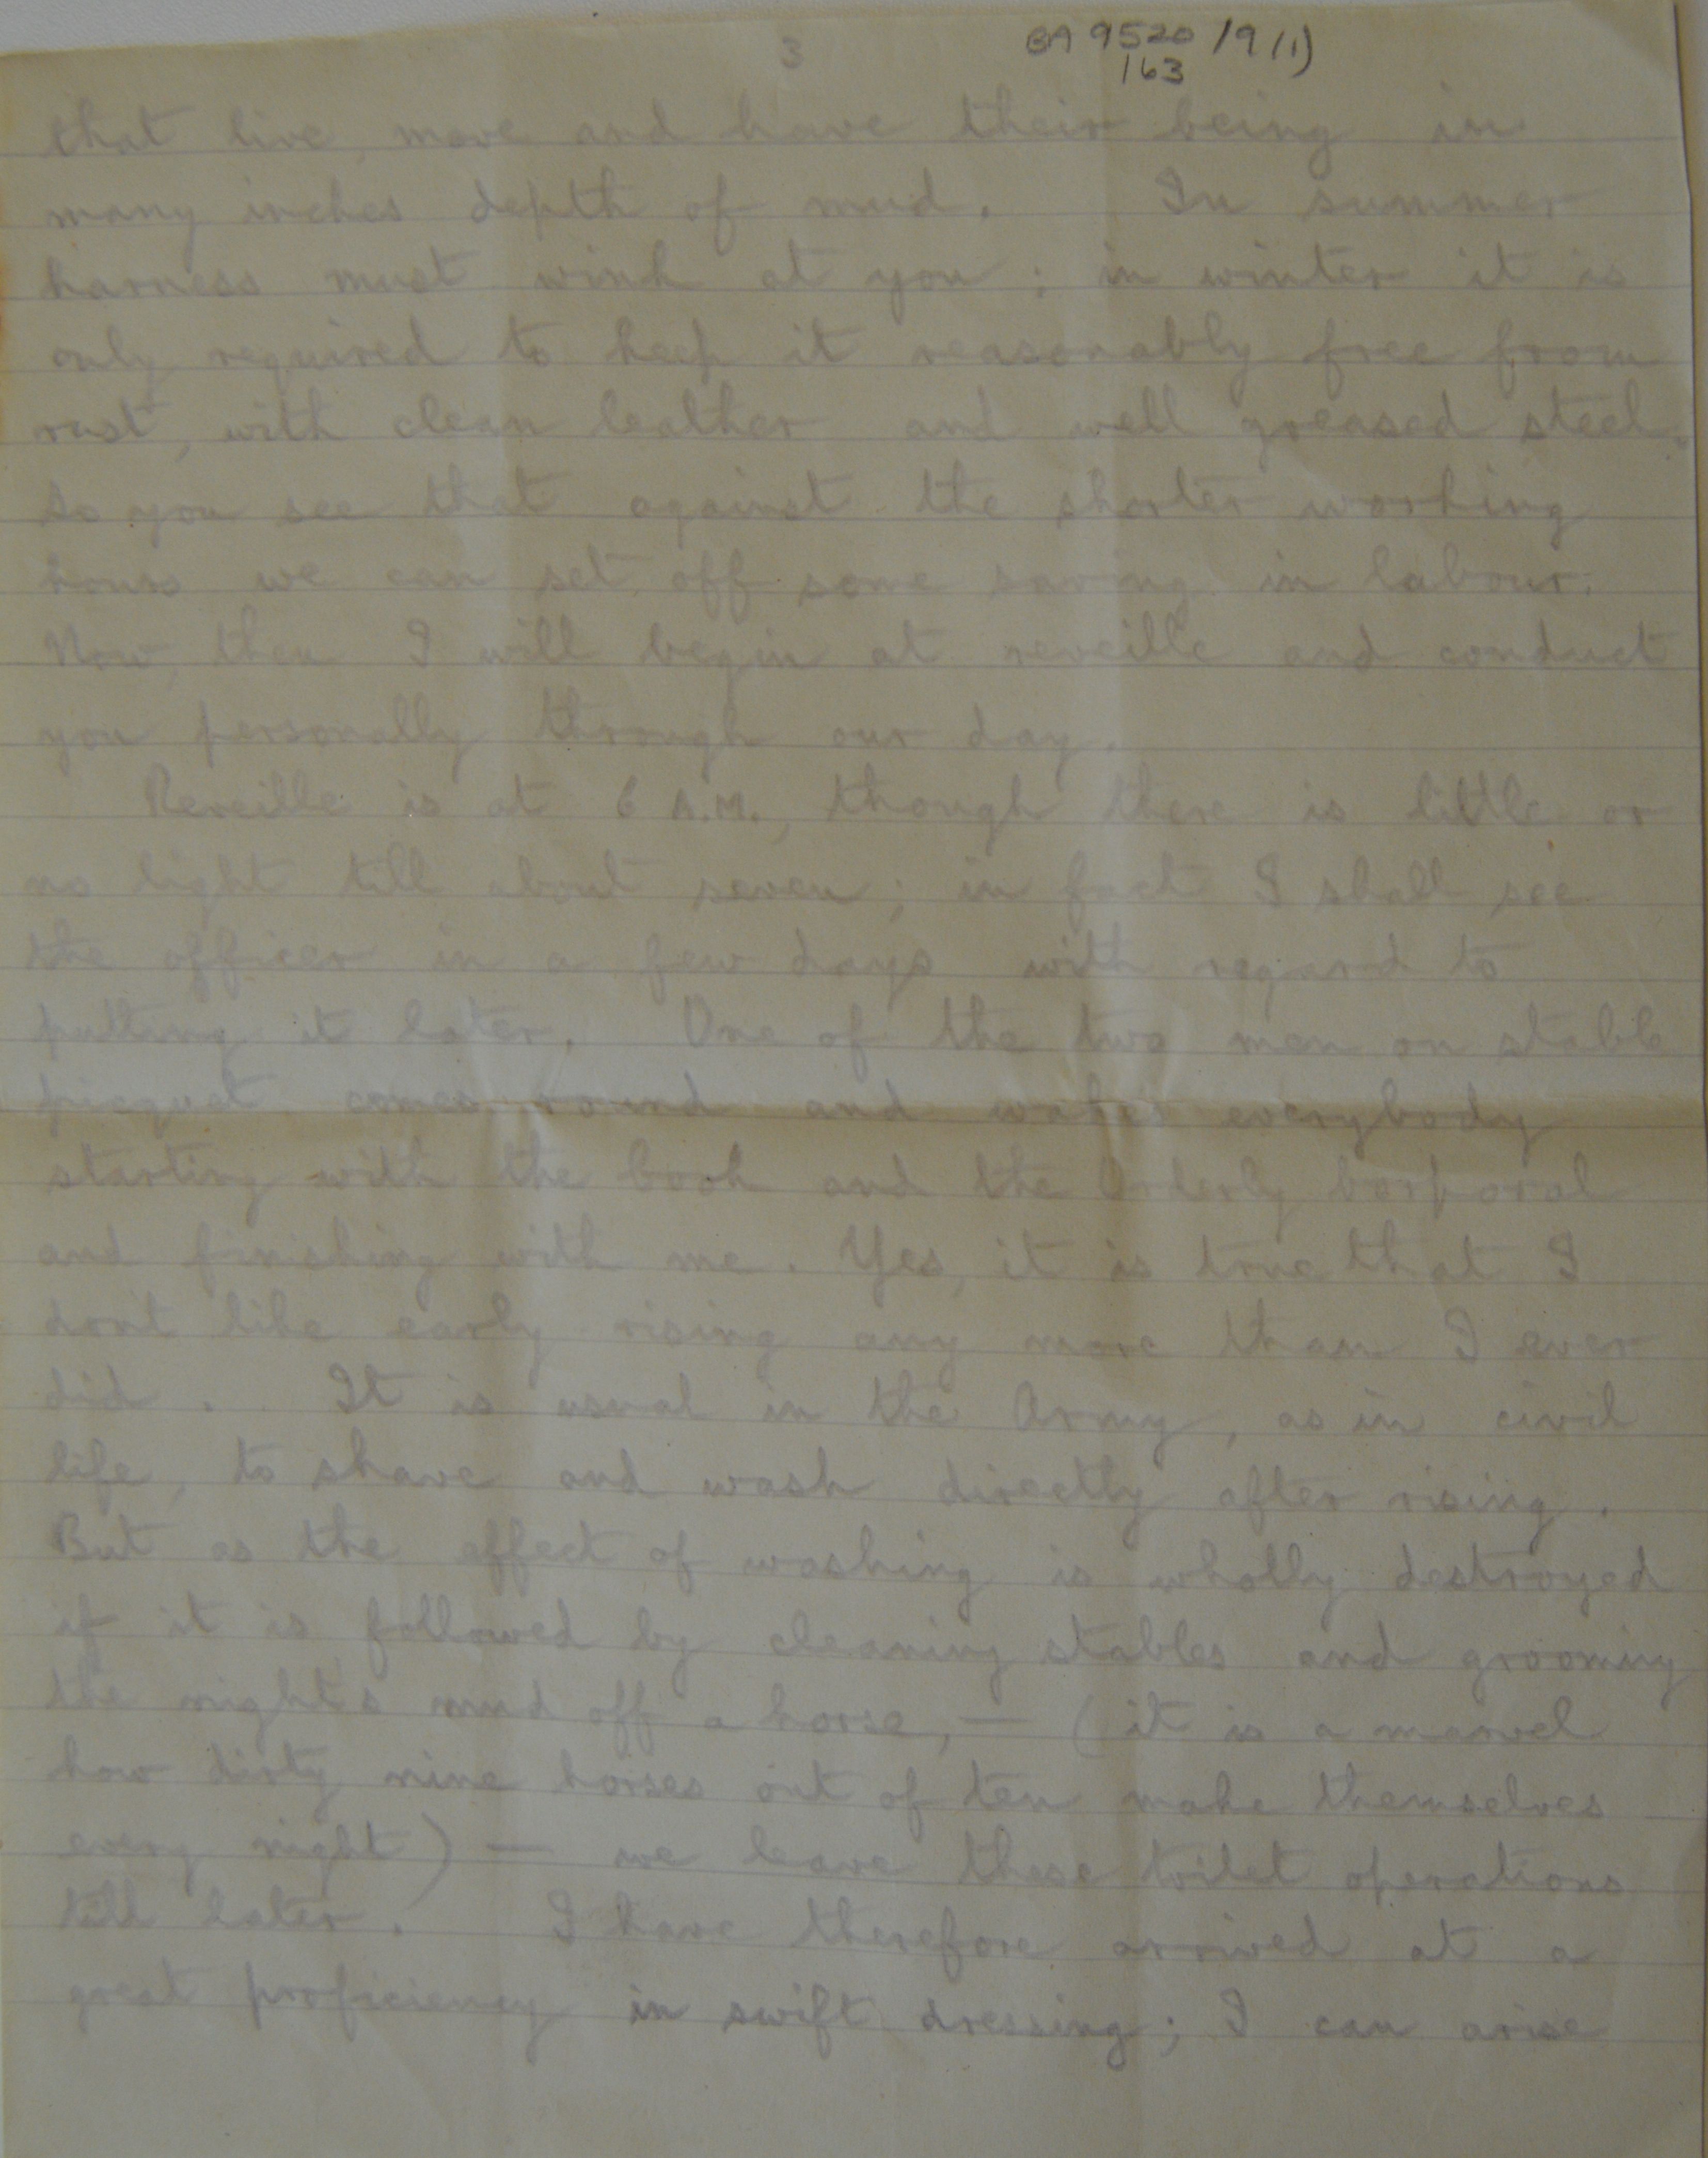 3
BA 9520/9(1)
163
that live, move and have their being in
many inches depth of mud. In summer
harness must wink at you; in winter it is
only required to keep it reasonably free from
rust, with clean leather and well greased steel.
So you see that against the shorter working
hours we can set off some saving in labour.
Now, then I will begin at reveille and conduct
you personally through our day.
Reveille is at 6 A.M., though there is little or
no light till about seven; in fact I shall see
the officer in a few days with regard to
putting it later. One of the two men on stable
picquet comes round and wakes everybody
starting with the cook and the Orderly Corporal
and finishing with me. Yes, it is true that I
don't like early rising any more than I ever
did. It is usual in the Army, as in civil
life, to shave and wash directly after rising.
But as the effect of washing is wholly destroyed
if it is followed by cleaning stables and grooming
the night's mud off a horse, — (it is a marvel
how dirty nine horses out of ten make themselves
every night) — we leave these toilet operations
till later. I have therefore arrived at a
great proficiency in swift dressing; I can arise